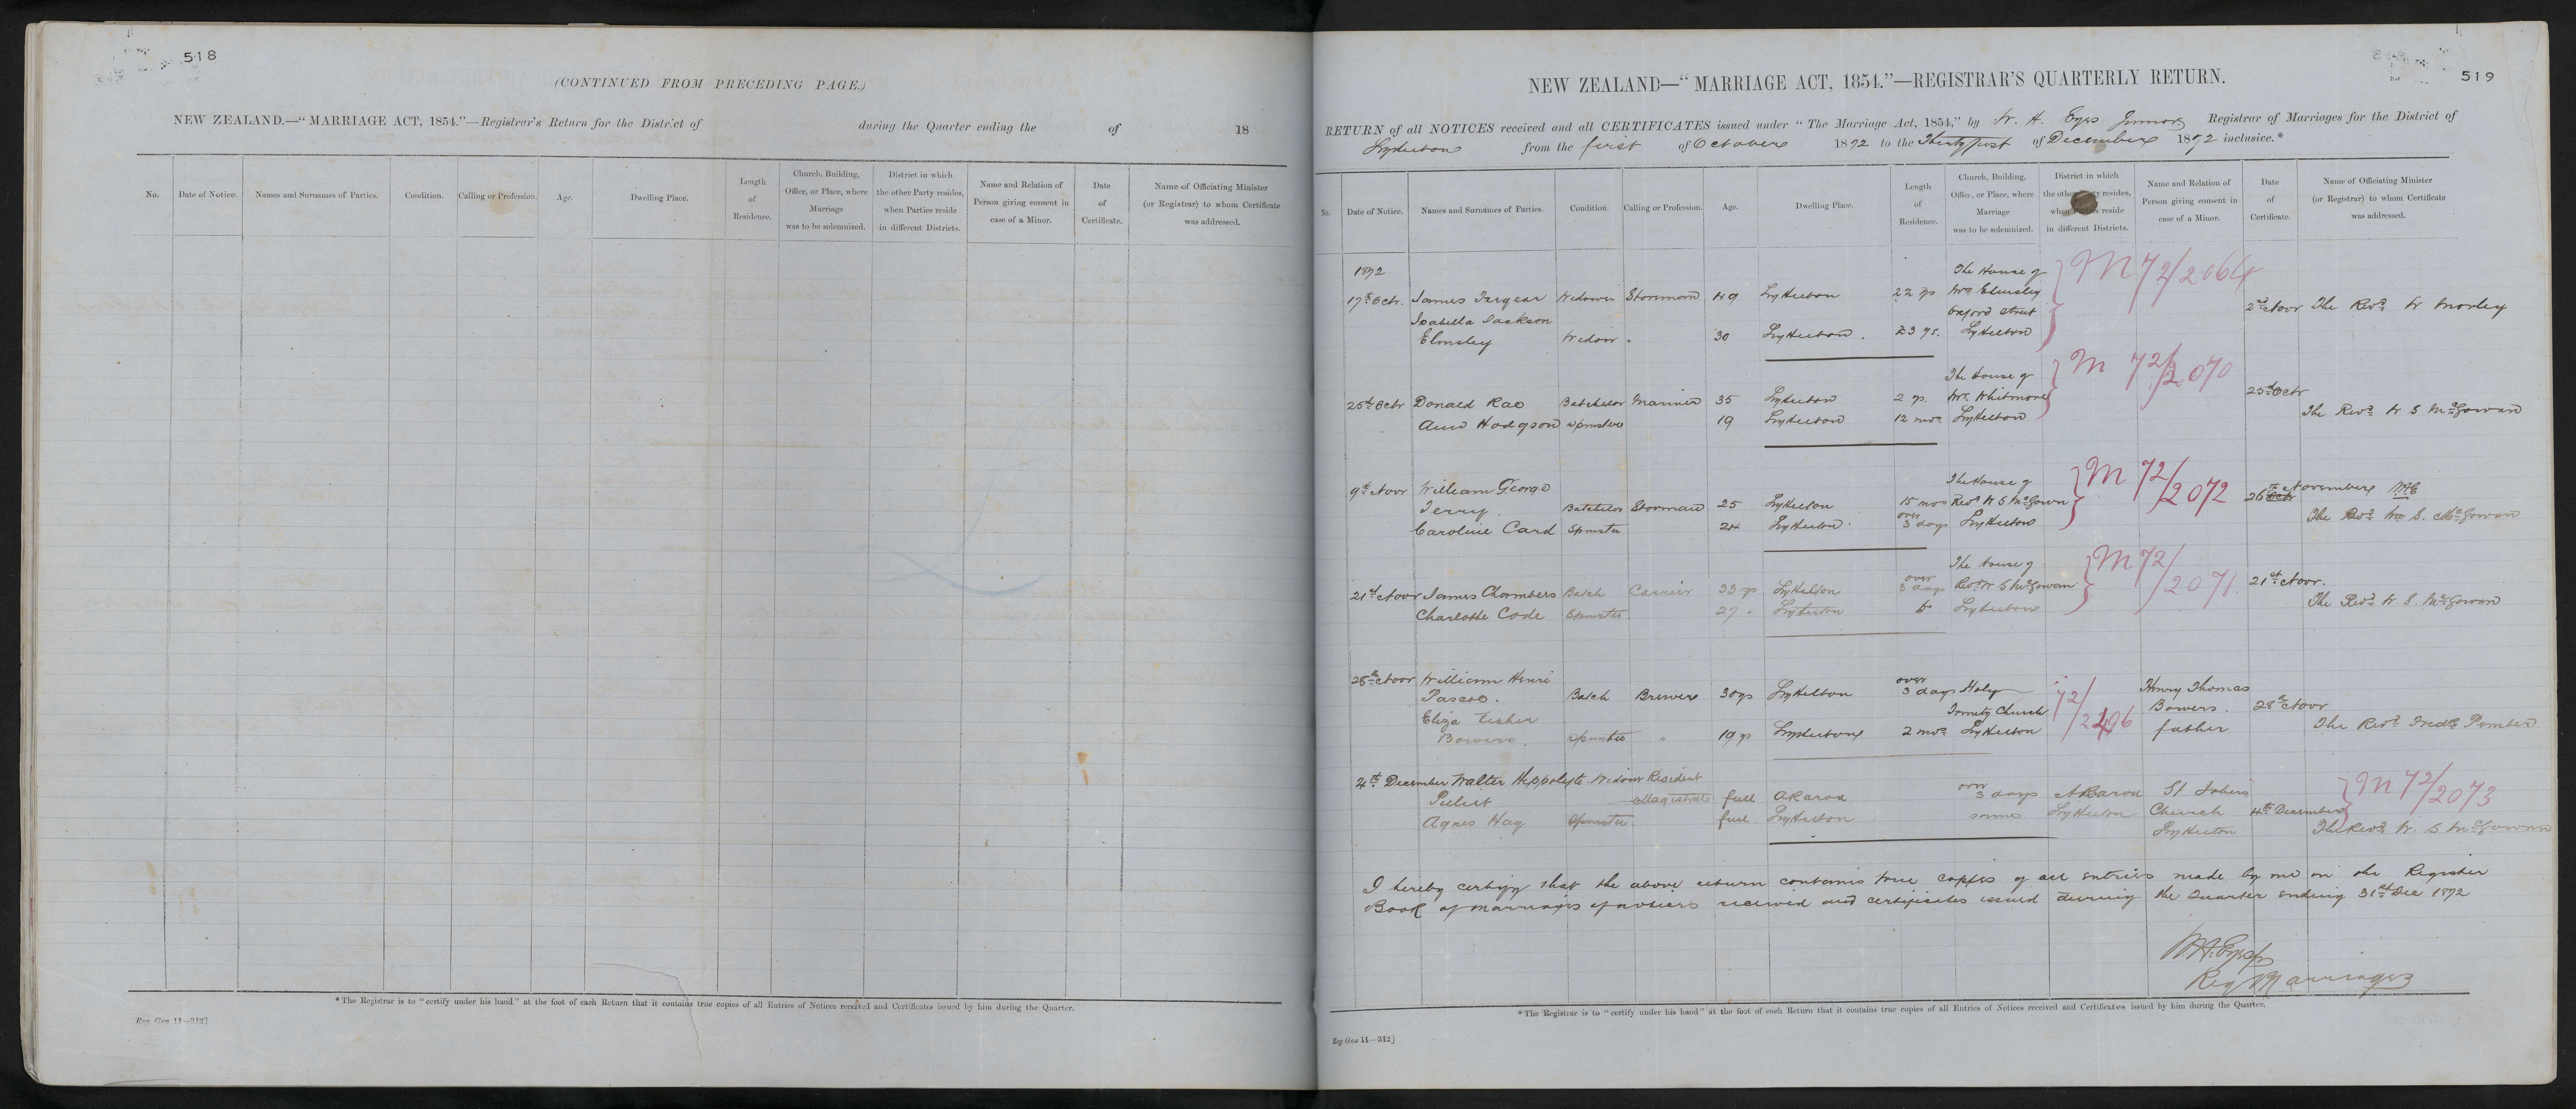 518
(CONTINUED FROM PRECEDING PAGE.)
NEW ZEALAND.—"MARRIAGE ACT, 1854."—Registrar's Return for the District of during the Quarter ending the of 18
No. Date of Notice. Names and Surnames of Parties. Condition. Calling or Profession. Age. Dwelling Place. Length of Residence. Church, Building, Office, or Place, where Marriage was to be solemnized. District in which the other Party resides, when Parties reside in different Districts. Name and Relation of Person giving consent in case of a Minor. Date of Certificate. Name of Officiating Minister (or Registrar) to whom Certificate was addressed.
*The Registrar is to "certify under his hand" at the foot of each Return that it contains true copies of all Entries of Notices received and Certificates issued by him during the Quarter.
Reg. Gen 11—312]
519
NEW ZEALAND—"MARRIAGE ACT, 1854."—REGISTRAR'S QUARTERLY RETURN.
RETURN of all NOTICES received and all CERTIFICATES issued under "The Marriage Act, 1854," by W. A. Eyes Junior Registrar of Marriages for the District of
Lyttelton from the first of October 1872 to the Thirty first of December 1872 inclusive.*
No. Date of Notice. Names and Surnames of Parties. Condition. Calling or Profession. Age. Dwelling Place. Length of Residence. Church, Building, Office, or Place, where Marriage was to be solemnized. District in which the other Party resides, when Parties reside in different Districts. Name and Relation of Person giving consent in case of a Minor. Date of Certificate. Name of Officiating Minister (or Registrar) to whom Certificate was addressed.
1872 The House of M 72/2064
17th Octr. James Widower Storeman 49 Lyttelton 22 ys Wm Elmsley 2nd Novr The Revd W Morley
Isabella Jackson Oxford Street
Elmsley Widow " 30 Lyttelton 23 ys. Lyttelton
The House of M 72/2070
25th Octr Donald Rae Batchelor Mariner 35 Lyttelton 2 ys. Wm Whitmore 25th Octr
Ann Hodgson Spinster 19 Lyttelton 12 mos Lyttelton The Revd W S McGowan
9th Novr William George The House of M 72/2072 26th Octr November WAE
Terry. Batchelor Storeman 25 Lyttelton 15 mos Revd W S McGowan The Revd Wm S. McGowan
Caroline Card Spinster 24 Lyttelton over 3 days Lyttelton
The house of M 72/2071
21st Novr James Chambers Batch Carrier 33 ys Lyttelton over 3 days Revd W S McGowan 21st Novr.
Charlotte Code Spinster 27 " Lyttelton Do Lyttelton The Revd W. S. McGowan
28th Novr William Henri
Pascoe. Batch Brewer 30 ys Lyttelton over 3 days Holy 72/2496 Henry Thomas
Eliza Fisher Trinity Church Bowers. 28th Novr
Bowers. Spinster " 19 ys Lyttelton 2 mos Lyttelton father The Revd Fredk Pember
4th December Walter Hippolyte Widower Resident M 72/2073
Pilliet Magistrate full Akaroa over 3 days Akaroa St Johns
Agnes Hay Spinster full. Lyttelton same Lyttelton Church 4th December
Lyttelton The Revd W. S McGowan
I hereby certify that the above return contains true copies of all entries made by me in the Register
Book of marriages of notices received and certificates issued during the Quarter ending 31st Dec 1872
W A. Eyes Jr
Reg Marriages
*The Registrar is to "certify under his hand" at the foot of each Return that it contains true copies of all Entries of Notices received and Certificates issued by him during the Quarter.
Reg Gen 11—312]